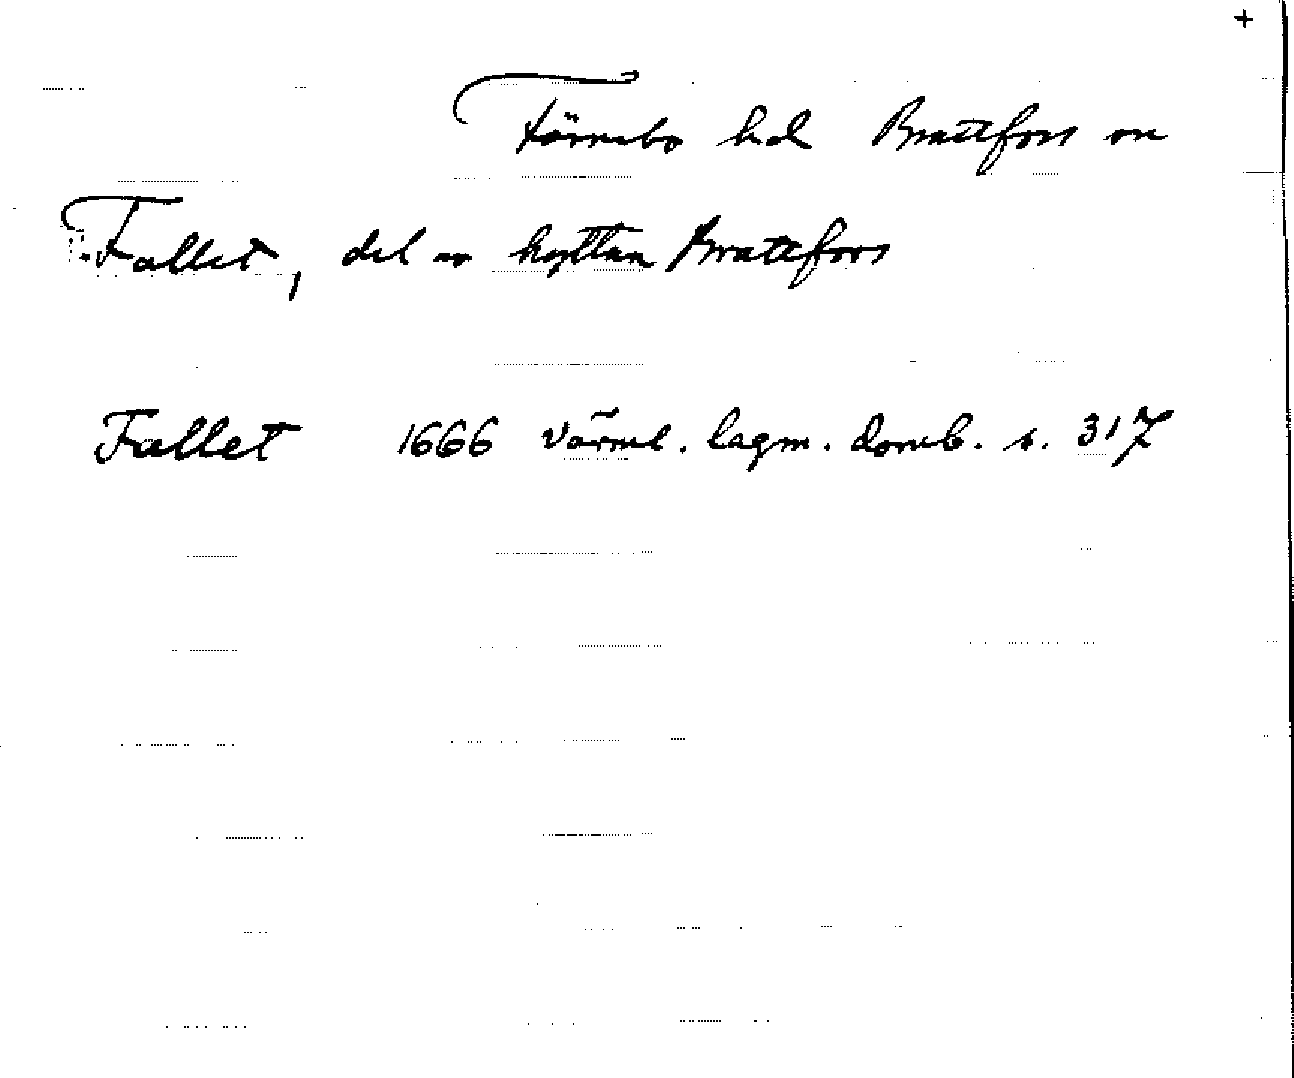 +
Färnebo hd Brattfors sn
Fallet, del av hyttan Brattfors
Fallet 1666 Värml. lagm. domb. s. 317